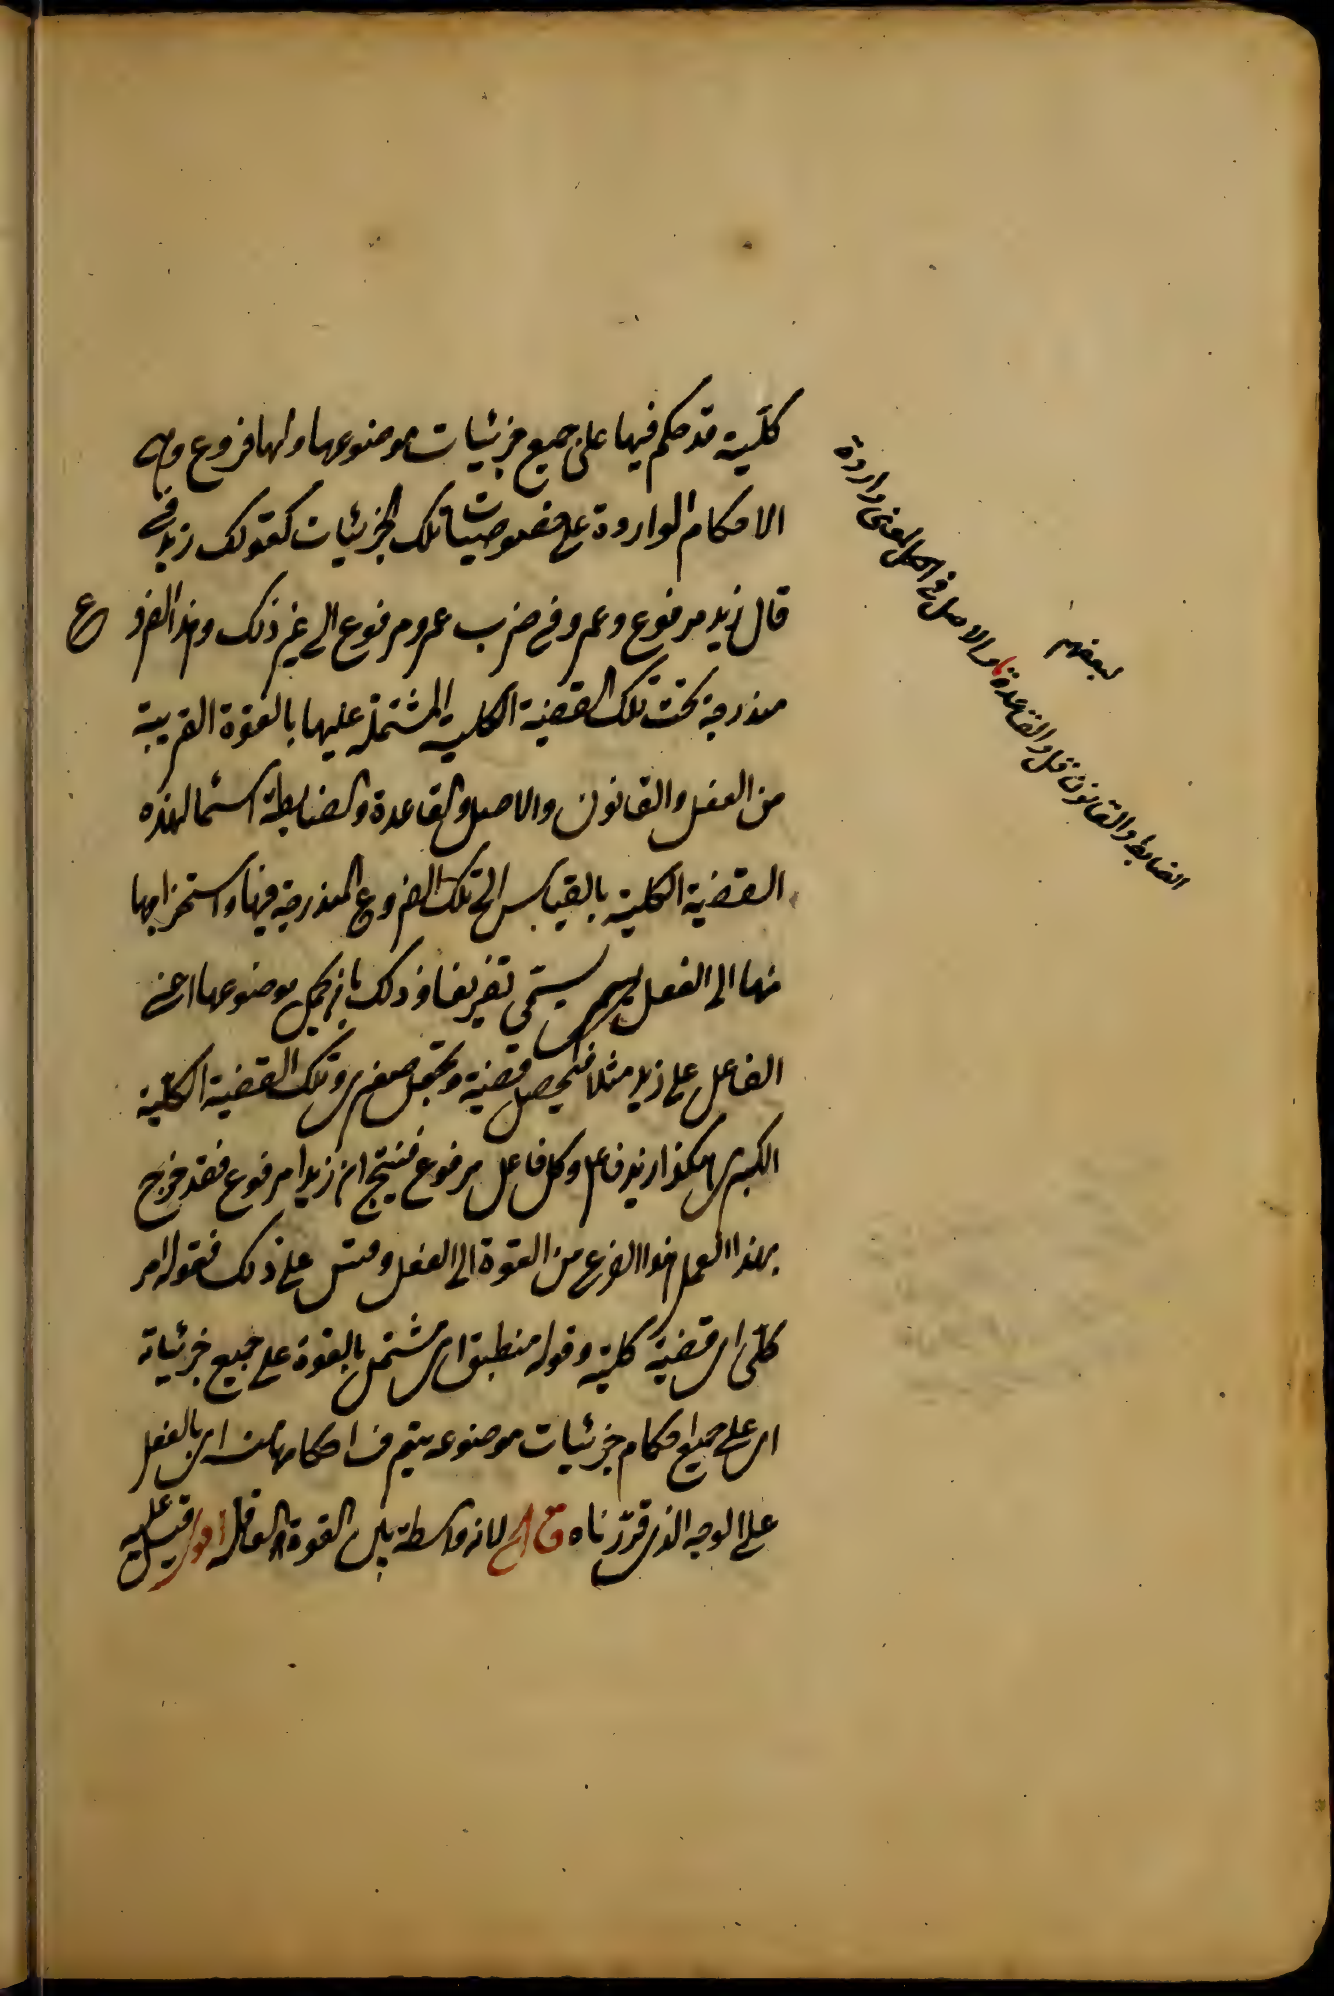 كلّية قد حكم فيها على جميع جزئيات موضوعها ولها فروع وهى
الاحكام الواردة على خصوصيات تلك الجزئيات كقولك زيد فى
قال زيد مرفوع وعمرو فى ضرب عمرو مرفوع الى غير ذلك وهذا الفرو
ع
مندرجة تحت تلك القضية الكلية المشتملة عليها بالقوة القريبة
من الفعل والقانون والاصل والقاعدة والضابطة اسما لهذه
القضية الكلية بالقياس الى تلك الفروع المندرجة فيها واستخراجها
منها الى الفعل يسمّى تفريعا وذلك بان يحمل موضوعها اعنى
الفاعل على زيد مثلا فتحصل قضية وتجعل صغرى وتلك القضية الكلّية
الكبرى هكذا زيد فاعل وكل فاعل مرفوع فينتج ان زيدا مرفوع فقد خرج
بهذا العمل هذا الفرع من القوة الى الفعل وقس على ذلك فقوله امر
كلّى اى قضية كلية وقوله منطبق اى مشتمل بالقوة على جميع جزئياته
اى على جميع احكام جزئيات موضوعه يتعرف احكامها منه اى بالفعل
على الوجه الذى قرّرناه قال لانه واسطة بين القوة العاقلة اقول قيل عليه
لبعضهم
الضابط والقانون قل والقاعدة والاصل فى الكل لمعنى واردة